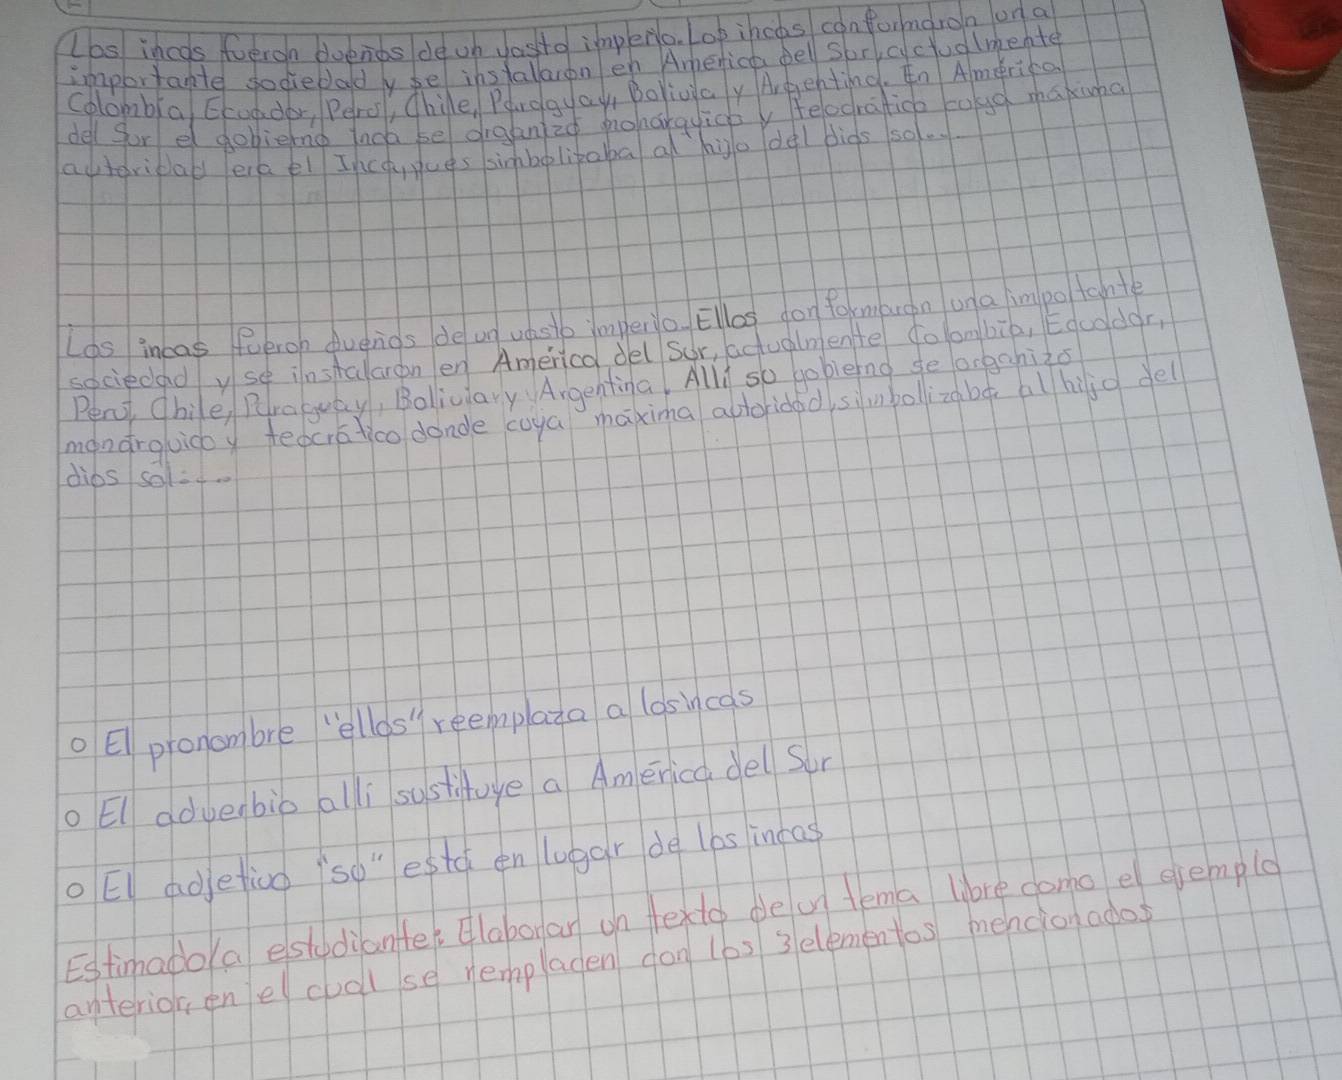 Los incas fueron dueños de un vasto imperio. Los incas conformaron una
importante sociedad y se instalaron en América del Sur, actualmente
Colombia, Ecuador, Perú, Chile, Paraguay, Bolivia y Argentina. En América
del Sur el gobierno inca se organizó monárquico y teocrático cuya máxima
autoridad era el Inca, pues simbolizaba al hijo del dios sol...
Los incas fueron dueños de un vasto imperio. Ellos conformaron una importante
sociedad y se instalaron en América del Sur, actualmente Colombia, Ecuador,
Perú, Chile, Paraguay, Bolivia y Argentina. Allí su gobierno se organizó
monárquico y teocrático donde cuya máxima autoridad, simbolizaba al hijo del
dios sol...
o El pronombre "ellos" reemplaza a los incas
o El adverbio alli sustituye a América del Sur
o El adjetivo "su" está en lugar de los incas
Estimado/a estudiante: Elaborar un texto de un tema libre como el ejemplo
anterior, en el cual se remplacen con los 3 elementos mencionados